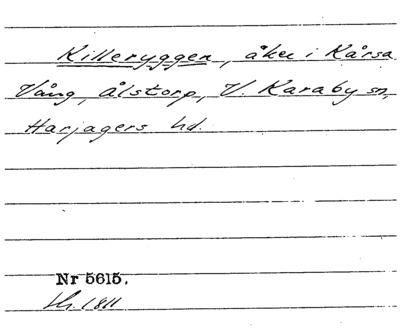 Killeryggen, åker i Kårsa
Vång, Ålstorp, V. Karaby sn,
Harjagers hd.
Nr 5615.
1811